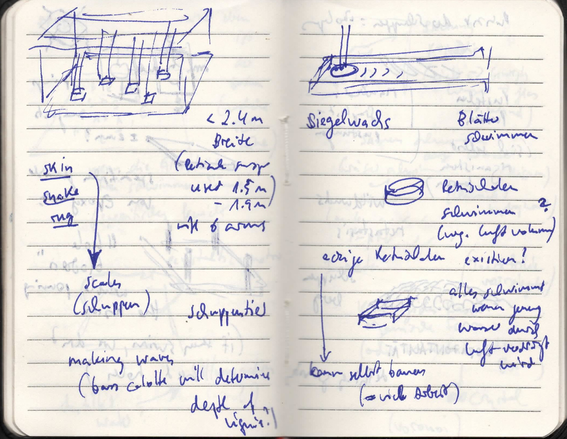 < 2.4 m
Breite
used 1.5 m)
- 1.9 m
with 6 arms
skin
snake
rug
scales
(schuppen)
schuppentiel
making waves
(bass calotte will determine
depth of
Siegelwachs
Blätter
schwimmen
Petrischalen
schwimmen ?
(wg. luft volumen)
eckige Petrischalen existieren?
alles schwimmt
wenn genug
wasser durch
luft verdrängt
wird
kann selbst bauen
(= viel Arbeit)